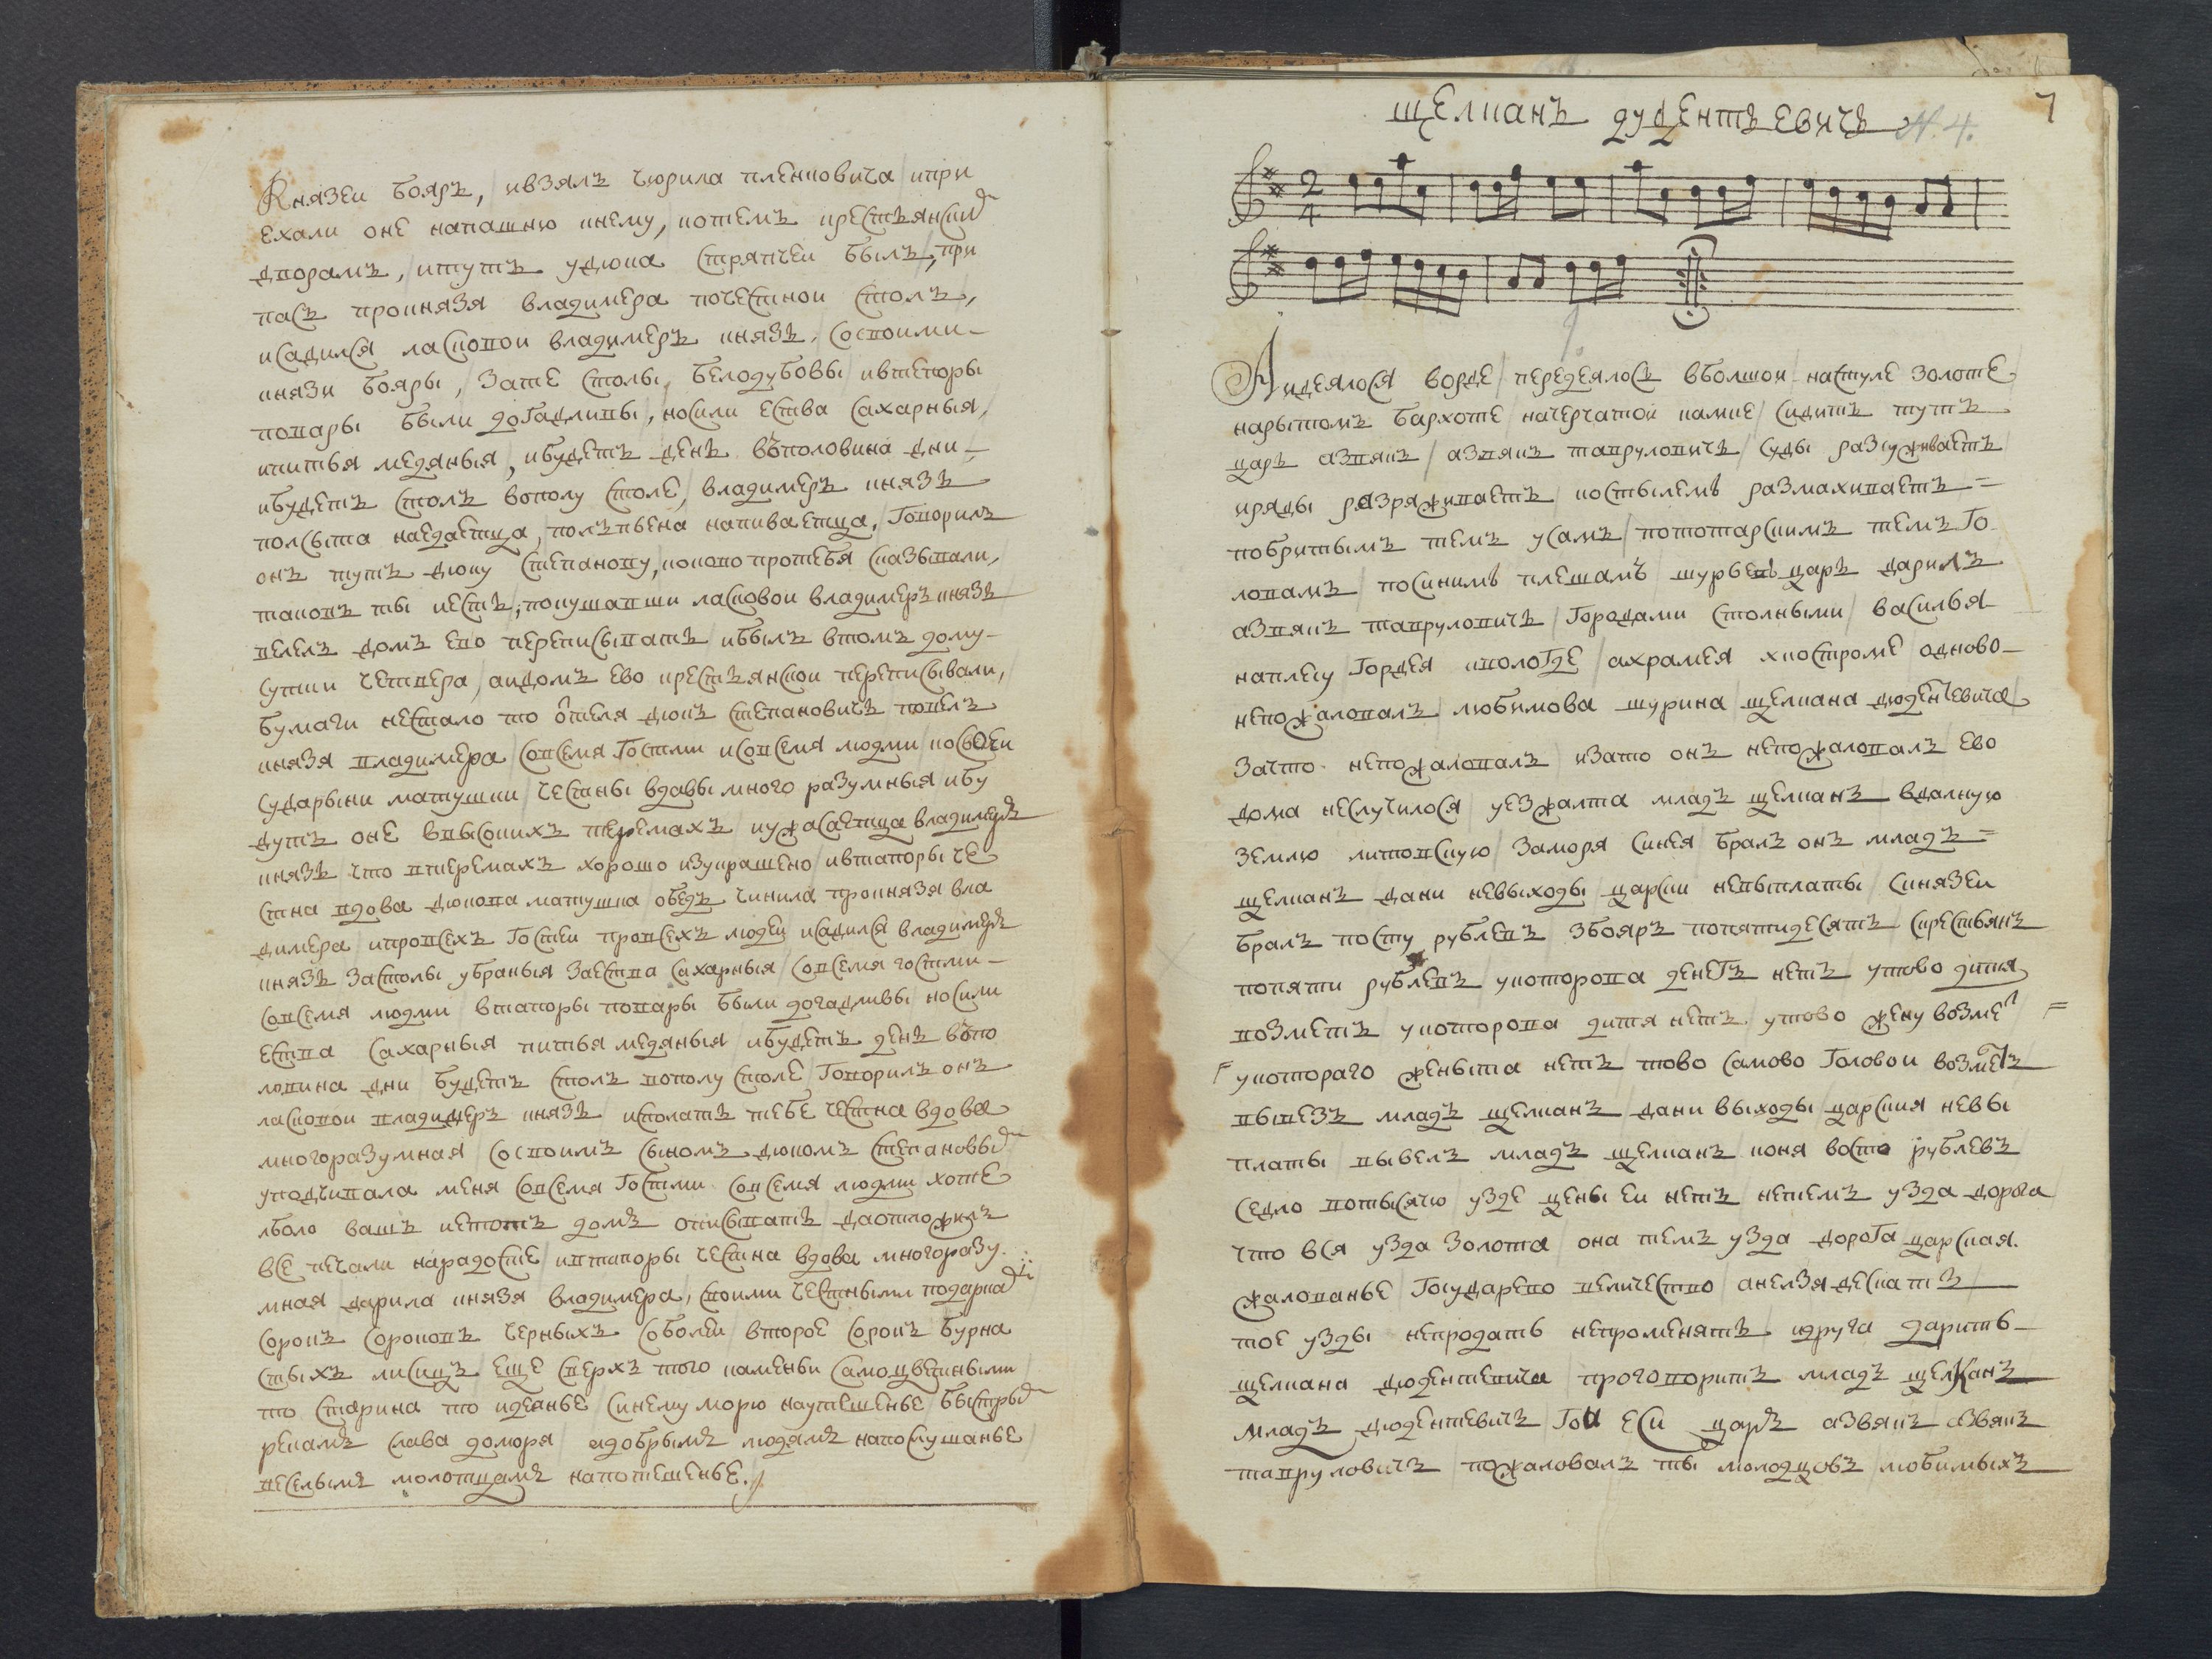 Князеи бояръ, ивзялъ чюрила пленковича ипри
ехали оне напашню кнему, котемъ крестьянски
дворамъ, итутъ удюка стряпчеи былъ, при
пасъ прокнязя владимера почестнои столъ,
исадился ласковои владимеръ князь, сосвоими
князи бояры, зате столы белодубовы ивтепоры
повары были догадливы, носили ества сахарныя,
ипитья медяныя, ибудетъ день вполовина дни
ибудетъ столъ вополу столе, владимеръ князь
полсыта наедаетца, полпьена напиваетца, говорилъ
онъ тутъ дюку степанову, коково протебя сказывали,
таковъ ты иесть, покушавши ласковои владимеръ князь
велелъ домъ ево переписывать ибылъ втомъ дому
сутки четвера, аидомъ ево крестьянскои переписывали,
бумаги нестало то отселя дюкъ степановичь повелъ
князя владимера совсемя гостми исовсемя людми косвоеи
сударыни матушки честны вдовы много разумныя ибу
дутъ оне ввысокихъ теремахъ иужасаетца владимеръ
князь что втеремахъ хорошо изукрашено ивтапоры че
стна вдова дюкова матушка обедъ чинила прокнязя вла
димера ипровсехъ гостеи провсехъ людеи исадился владимеръ
князь застолы убраныя заества сахарныя совсемя гостми
совсемя людми втапоры повары были догадливы носили
ества сахарныя питья медяныя ибудетъ день впо
ловина дни будетъ столъ вополу столе говорилъ онъ
ласковои владимеръ князь исполать тебе честна вдова
многоразумная сосвоимъ сыномъ дюкомъ степановы
уподчивала меня совсемя гостми совсемя людми хоте
лъ было вашъ иетотъ домъ описывать даотложилъ
все печали нарадосте ивтапоры честна вдова многоразу
мная дарила князя владимера, своими честными подарка
сорокъ сороковъ черныхъ соболеи второе сорокъ бурна
стыхъ лисицъ еще сверхъ того каменьи самоцветными
то старина то идеянье синему морю наутешенье быстры
рекамъ слава доморя адобрымъ людямъ напослушанье
веселымъ молотцамъ напотешенье.
щелканъ дудентьевичь N. 4.
7
Аидеялося ворде передеялось вболшои настуле золоте
нарытомъ бархоте начерчатои камке сидитъ тутъ
царь азвякъ азвякъ тавруловичь суды разсуживаетъ
иряды разряживаетъ костылемъ размахиваетъ
побритымъ темъ усамъ пототарскимъ темъ го
ловамъ посинимъ плешамъ шурьевъ царь дарилъ
азвякъ тавруловичь городами столными василья
наплесу гордея квологде ахрамея хкостроме одново
непожаловалъ любимова шурина щелкана дюдентевича
зачто непожаловалъ изато онъ непожаловалъ ево
дома неслучилося уезжалта младъ щелканъ вдалную
землю литовскую заморя синея бралъ онъ младъ
щелканъ дани невыходы царски невыплаты скнязеи
бралъ посту рублевъ збояръ попятидесятъ скрестьянъ
попяти рублевъ укоторова денегъ нетъ утово дитя
возметъ укоторова дитя нетъ утово жену возме
укотораго женыта нетъ тово самово головои возметъ
вывезъ младъ щелканъ дани выходы царския невы
платы вывелъ младъ щелканъ коня восто рублевъ
седло вотысячю узде цены еи нетъ нетемъ узда дорога
что вся узда золота она темъ узда дорога царская.
жалованье государево величество анелзя дескать
тое узды непродать непроменять идруга дарить
щелкана дюдентевича проговоритъ младъ щелканъ
младъ дюдентевичь гои еси царь азвякъ азвякъ
тавруловичь пожаловалъ ты молодцовъ любимыхъ